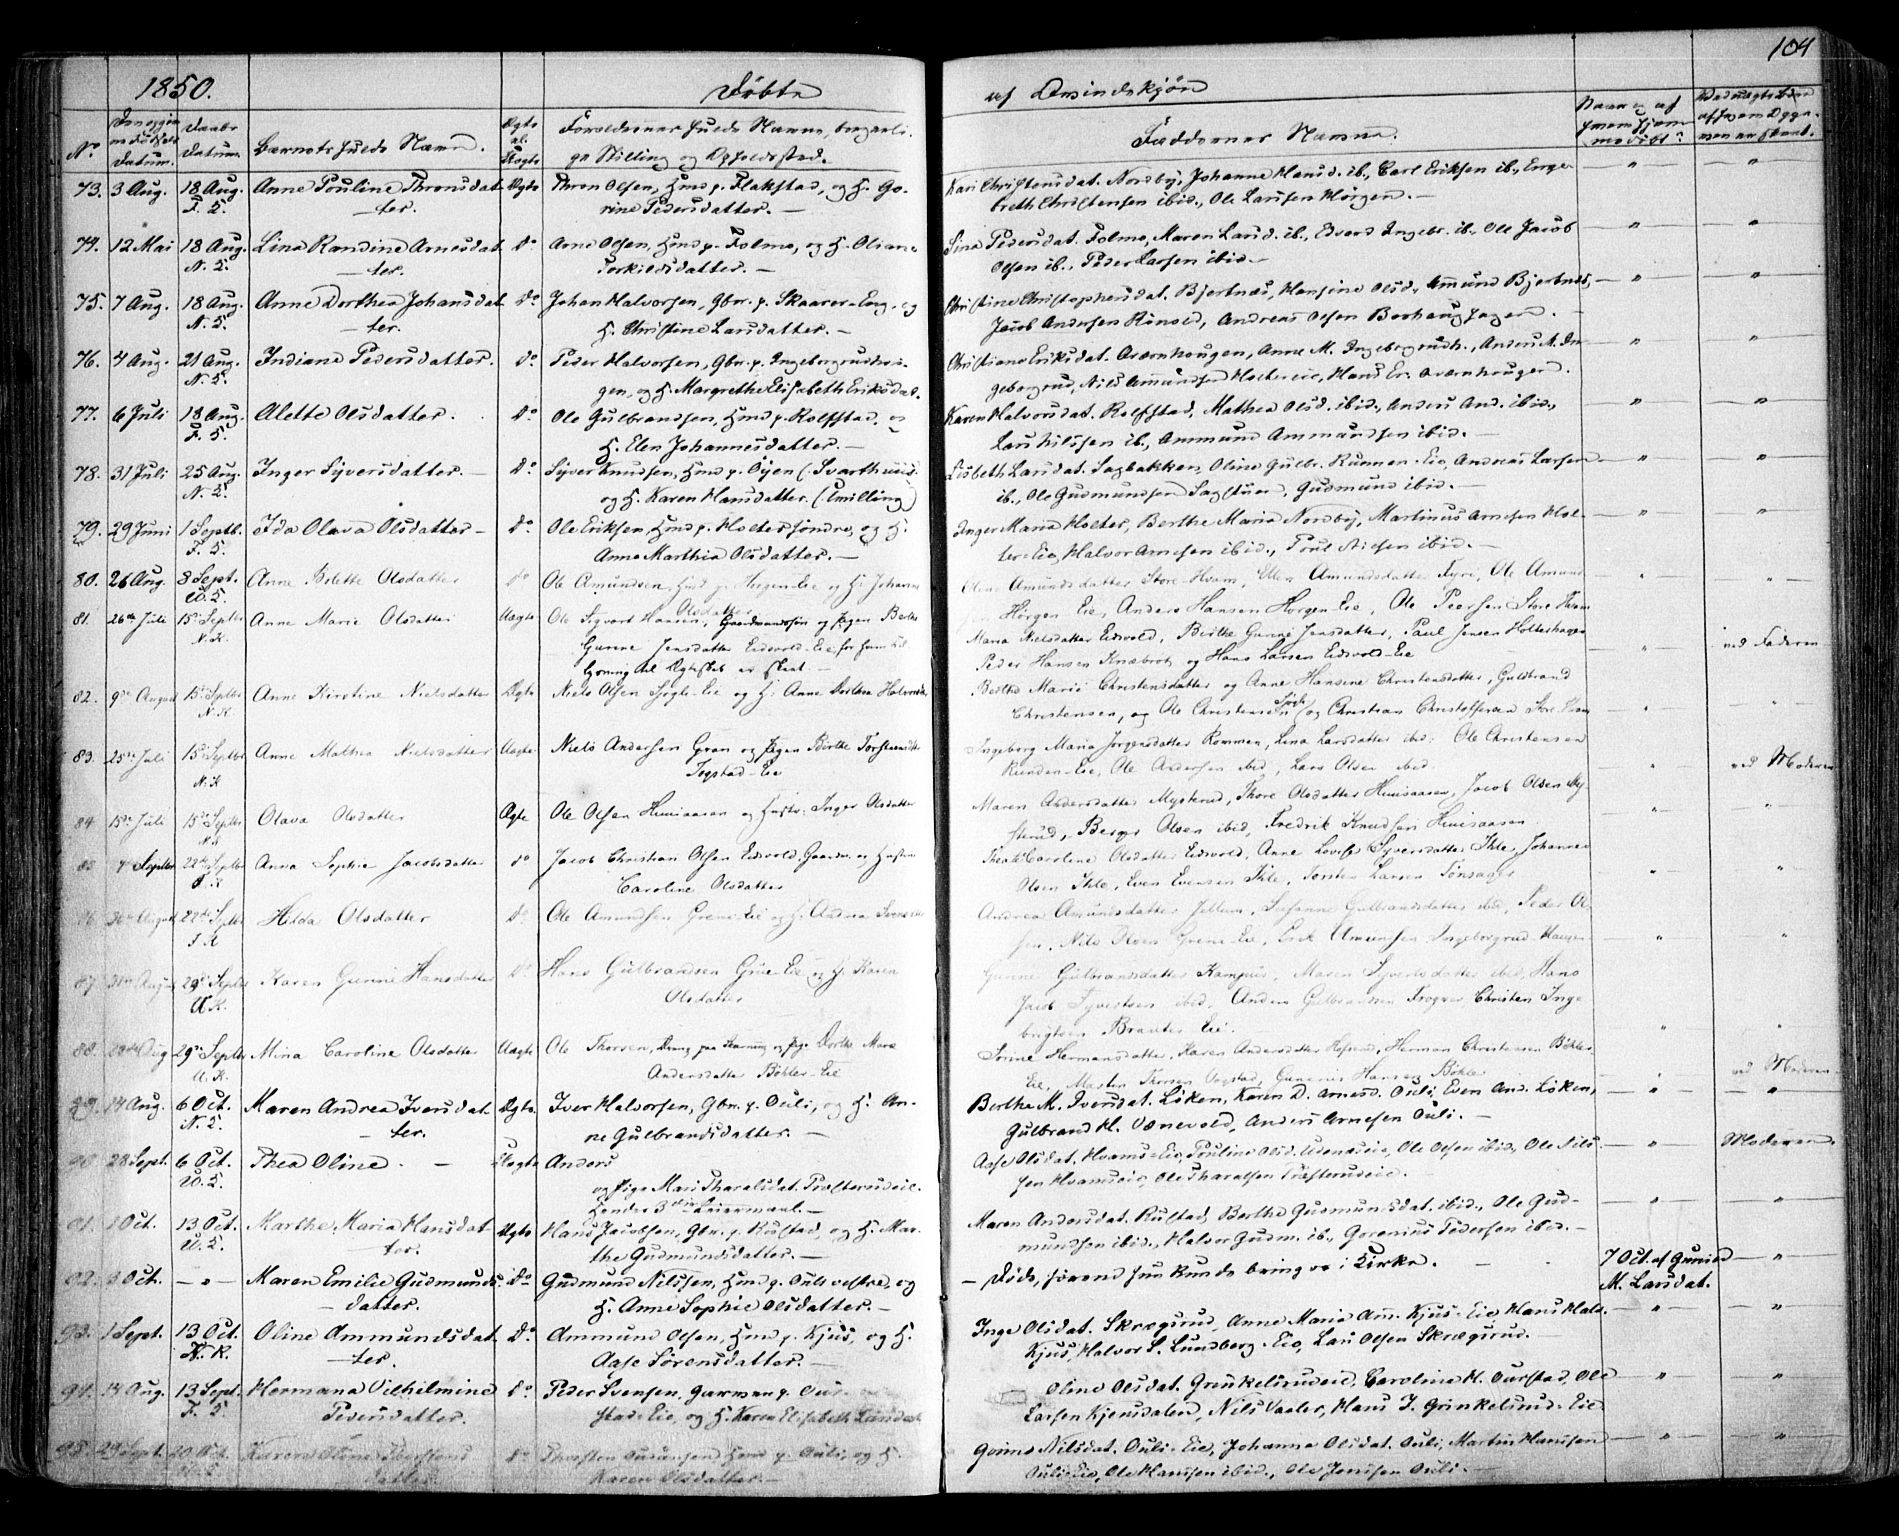 104
1850. Døbte af Qvindekjøn
No. Datum. Daabs Datum. Barnets fulde Navn. Ægte el. Uægte Forældrenes fulde Navne, borgerli-
ge Stilling og Opholdssted. Faddernes Navne.
73. 3 Aug. 18 Aug. Anne Pouline Thronsdat- Ægte Thron Olsen, Hmd p. Flakstad, og H. Go-
F. K. ter. rine Pedersdatter. —
Kari Christensdat. Nordby, Johanne Hansd. ib., Carl Eriksen ib., Enge-
breth Christensen ibid., Ole Larsen Horgen. —
74. 12 Mai 18 Aug. Lina Randine Arnesdat- Do Arne Olsen, Hmd p. Folmo, og H. Oliane
N. K. ter. Torkildsdatter. —
Lina Pedersdat. Folmo, Maren Larsd. ib., Edvard Ingebr. ib., Ole Jacob
Olsen ib., Peder Larsen ibid. —
75. 7 Aug. 18 Aug. Anne Dorthea Johansdat- Do Johan Halvorsen, Gbr. p. Skaarer-Eng, og
N. K. ter. H. Christine Larsdatter. —
Christine Christophersdat. Bjertnæs, Hansine Olsd., Amund Bjertnæs,
Jacob Andersen Rånold, Andreas Olsen
76. 4 Aug. 21 Aug. Indiane Pedersdatter. Do Peder Halvorsen, Gbr. p. Ingeborgrudhou-
N. K. gen, og H. Margrethe Elisabeth Eriksdat.
Christiane Eriksdat. Aarnhougen, Anne M. Ingeborgrudh., Anders A. In-
geborgrud, Nils Amundsen Holtereie, Hans Er. Aarnhougen.
77. 6 Juli 18 Aug. Alette Olsdatter. Do Ole Gulbrandsen, Hmd p. Rolfstad, og
F. K. H. Elen Johannesdatter. —
Karen Halvorsdat. Rolfstad, Mathea Olsd. ibid., Anders And. ibid.,
Lars Nilssen ib., Ammund Ammundsen ibid. —
78. 31 Juli 25 Aug. Inger Syversdatter. — Do Syver Knudsen, Hmd p. Øyen (
N. K. og H. Karen Hansdatter. (Tvilling)
Lisbeth Larsdat. Sagbakken, Oline Gulbr. Runnen-Eie, Andreas Larsen
ib., Ole Gudmundsen Sagstuen, Gudmund ibid. —
79. 29 Juni 1 Septb. Ida Olava Olsdatter — Do Ole Eriksen, Hmd p. Holter søndre, og H.
F. K. Anne Marthia Olsdatter. —
Inger Maria Holter, Berthe Maria Nordby, Martinus Arnesen Hol-
ter-Eie, Halvor Arnesen ibid., Poul ibid. —
80. 26 Aug. 8 Sept. Anne Bolette Olsdatter do Ole Amundsen Hmd p. Horgen-Eie og H. Johanne
U. K. Olsdatter
Amundsdatter Store-Hvam, Ellen Amundsdatter Fyri, Ole Amund
Horgen Eie, Anders Hansen Horgen-Eie, Ole Pedersen Store Hvam
81. 26de Juli 15de Septbr Anne Marie Olsdatter Uægte Ole Sigvart Hansen, Gaardmandssøn og Pigen Berthe
N. K. Gurine Jensdatter Eidsvold-Eie for hvem til
lysning til Ægteskab er skeet. —
Maria Nielsdatter Eidsvold, Berthe Gurine Jensdatter, Paul Jensen Holterhagen
Peder Hansen Knæbrot og Hans Larsen Eidsvold-Eie
ved Faderen
82. 9de August 15de Septbr Anne Kirstine Nielsdatter Ægte Niels Olsen Sjøgle-Eie og H. Anne Dorthea Halvorsdt
N. K.
Berthe Marie Christensdatter og Anne Hansine Christensdatter, Guldbrand
Christensen, og Ole Christensen og Christian Christophersen Store Hvam
83. 25de Juli 15de Septbr Anne Mathea Nielsdatter Uægte Niels Andersen Gran og Pigen Berthe Torstensdtr
N. K. Ingstad-Eie
Ingeborg Maria Jørgensdatter Rommen, Lina Larsdatter ibid: Ole Christensen
Runden-Eie, Ole Andersen ibid, Lars Olsen ibid
ved Moderen
84 15de Juli 15de Septbr Olava Olsdatter Ægte Ole Olsen Huusaasen og Hustr. Inger Olsdatter
N. K
Maren Andersdatter Mystrud, Thore Olsdatter Huusaasen, Jacob Olsen My-
strud, Berger Olsen ibid, Fredrik Knudsen Huusaasen
85 4de Septbr 22de Septbr Anna Sophie Jacobsdatter do Jacob Christian Olsen Eidsvold, Gaardm. og Hustru
F. K Caroline Olsdatter
Thea Caroline Olsdatter Eidsvold, Anne Lovise Syversdatter Ihle, Johannes
Olsen Ihle, Even Evensen Ihle, Torsten Larsen Tønsager
86 30te August 22de Septbr Hilda Olsdatter do Ole Amundsen Grene-Eie og H. Andrea
F. K
Andrea Amundsdatter Jellum, Susanne Gulbrandsdatter ibid, Peder Ol-
sen, Nils Olsen Grene-Eie, Erik Amundsen Ingeborgrud-Haugen
87 31te August 29de Septbr Karen Gurine Hansdatter do Hans Gulbrandsen Grue-Eie og H. Karen
U. K. Olsdatter
Gurine Gulbrandsdatter Kampus, Maren Syversdatter ibid, Hans
Jacob Syvertsen ibid, Anders Gulbrandsen Frogner, Christen Inge
brigtsen Braater Eie.
88. Aug 29de Septbr Mina Caroline Olsdatter Uægte Ole Thorsen, Dreng paa og Pige Dorthe Marie
U. K. Andersdatter Bøhler-Eie
Sorine Hermansdatter, Karen Andersdatter, Herman Christensen Bøhler
Eie, Morten Thorsen, Gunerius Hansen Bøhler
ved Moderen
89. 14 Aug. 6 Oct. Maren Andrea Iversdat- Ægte Iver Halvorsen, Gbr. p. Ouli, og H. An-
N. K. ter. ne Gulbrandsdatter. —
Berthe M. Iversdat. Løken, Karen D. Arnesd. Ouli, Even And. Løken,
Gulbrand H. Vænevold, Anders Arnesen Ouli. —
90 28 Sept. 6 Oct. Thea Oline. — Uægte Anders
U. K. og Pige Mari Tharalsdat. Træsterudeie.
hendes 3die Leiermaal. —
Aase Olsdat. Hvams-Eie, Pouline Olsd., Ole Olsen ibid., Ole Nils-
sen Hvamseie, Ole Tharalsen Træsterudeie. —
Moderen
91. 1 Oct. 13 Oct. Marthe Maria Hansdat- Ægte Hans Jacobsen, Gbr. p. Rustad, og H. Mar-
U. K. ter. the Gudmundsdatter. —
Maren Andersdat. Rustad, Berthe Gudmundsdat. ibid., Ole Gud-
mundsen ibid., Halvor Gudm. ib., Gorenius Pedersen ibid. —
92. 6 Oct. — " — Maren Emilie Gudmunds- Do Gudmund Nilssen, Hmd p. Ouli vestre, og
datter. H. Anne Sophie Olsdatter. —
— Døde, førend hun kunde bringes i Kirke. — 7 Oct. af Gunild
M. Larsdat.
93. 1 Sept. 13 Oct. Oline Ammundsdat- Do Ammund Olsen, Hmd p. Kjus, og H.
N. K. ter. Aase Sørensdatter. —
Inge Olsdat. Skrægsrud, Anne Maria Am. Kjus-Eie, Hans Hals.
Kjus, Halvor S. Lundberg-Eie, Lars Olsen Skrægsrud. —
94. 14 Aug. 13 Sept. Hermana Vilhelmine Do Peder Svensen, Garver p. Our-
F. K. Pedersdatter. stad-Eie, og H. Karen Elisabeth
Oline Olsdat. Grinkelsrudeie, Caroline H. Ourstad, Ole
Larsen Kjensdalen, Nils Vaaler, Hans J. Grinkelsrud-Eie
95. 29 Sept. 20 Oct. Karen Oline Thorstens- Do Thorsten Hmd p. Ouli, og H.
datter. Karen Olsdatter. —
Gorine Nilsdat. Ouli-Eie, Johanne Olsdat. Ouli, Martin Hanssen
Ouli-Eie, Ole Hanssen ibid., Ole Jenssen Ouli. —